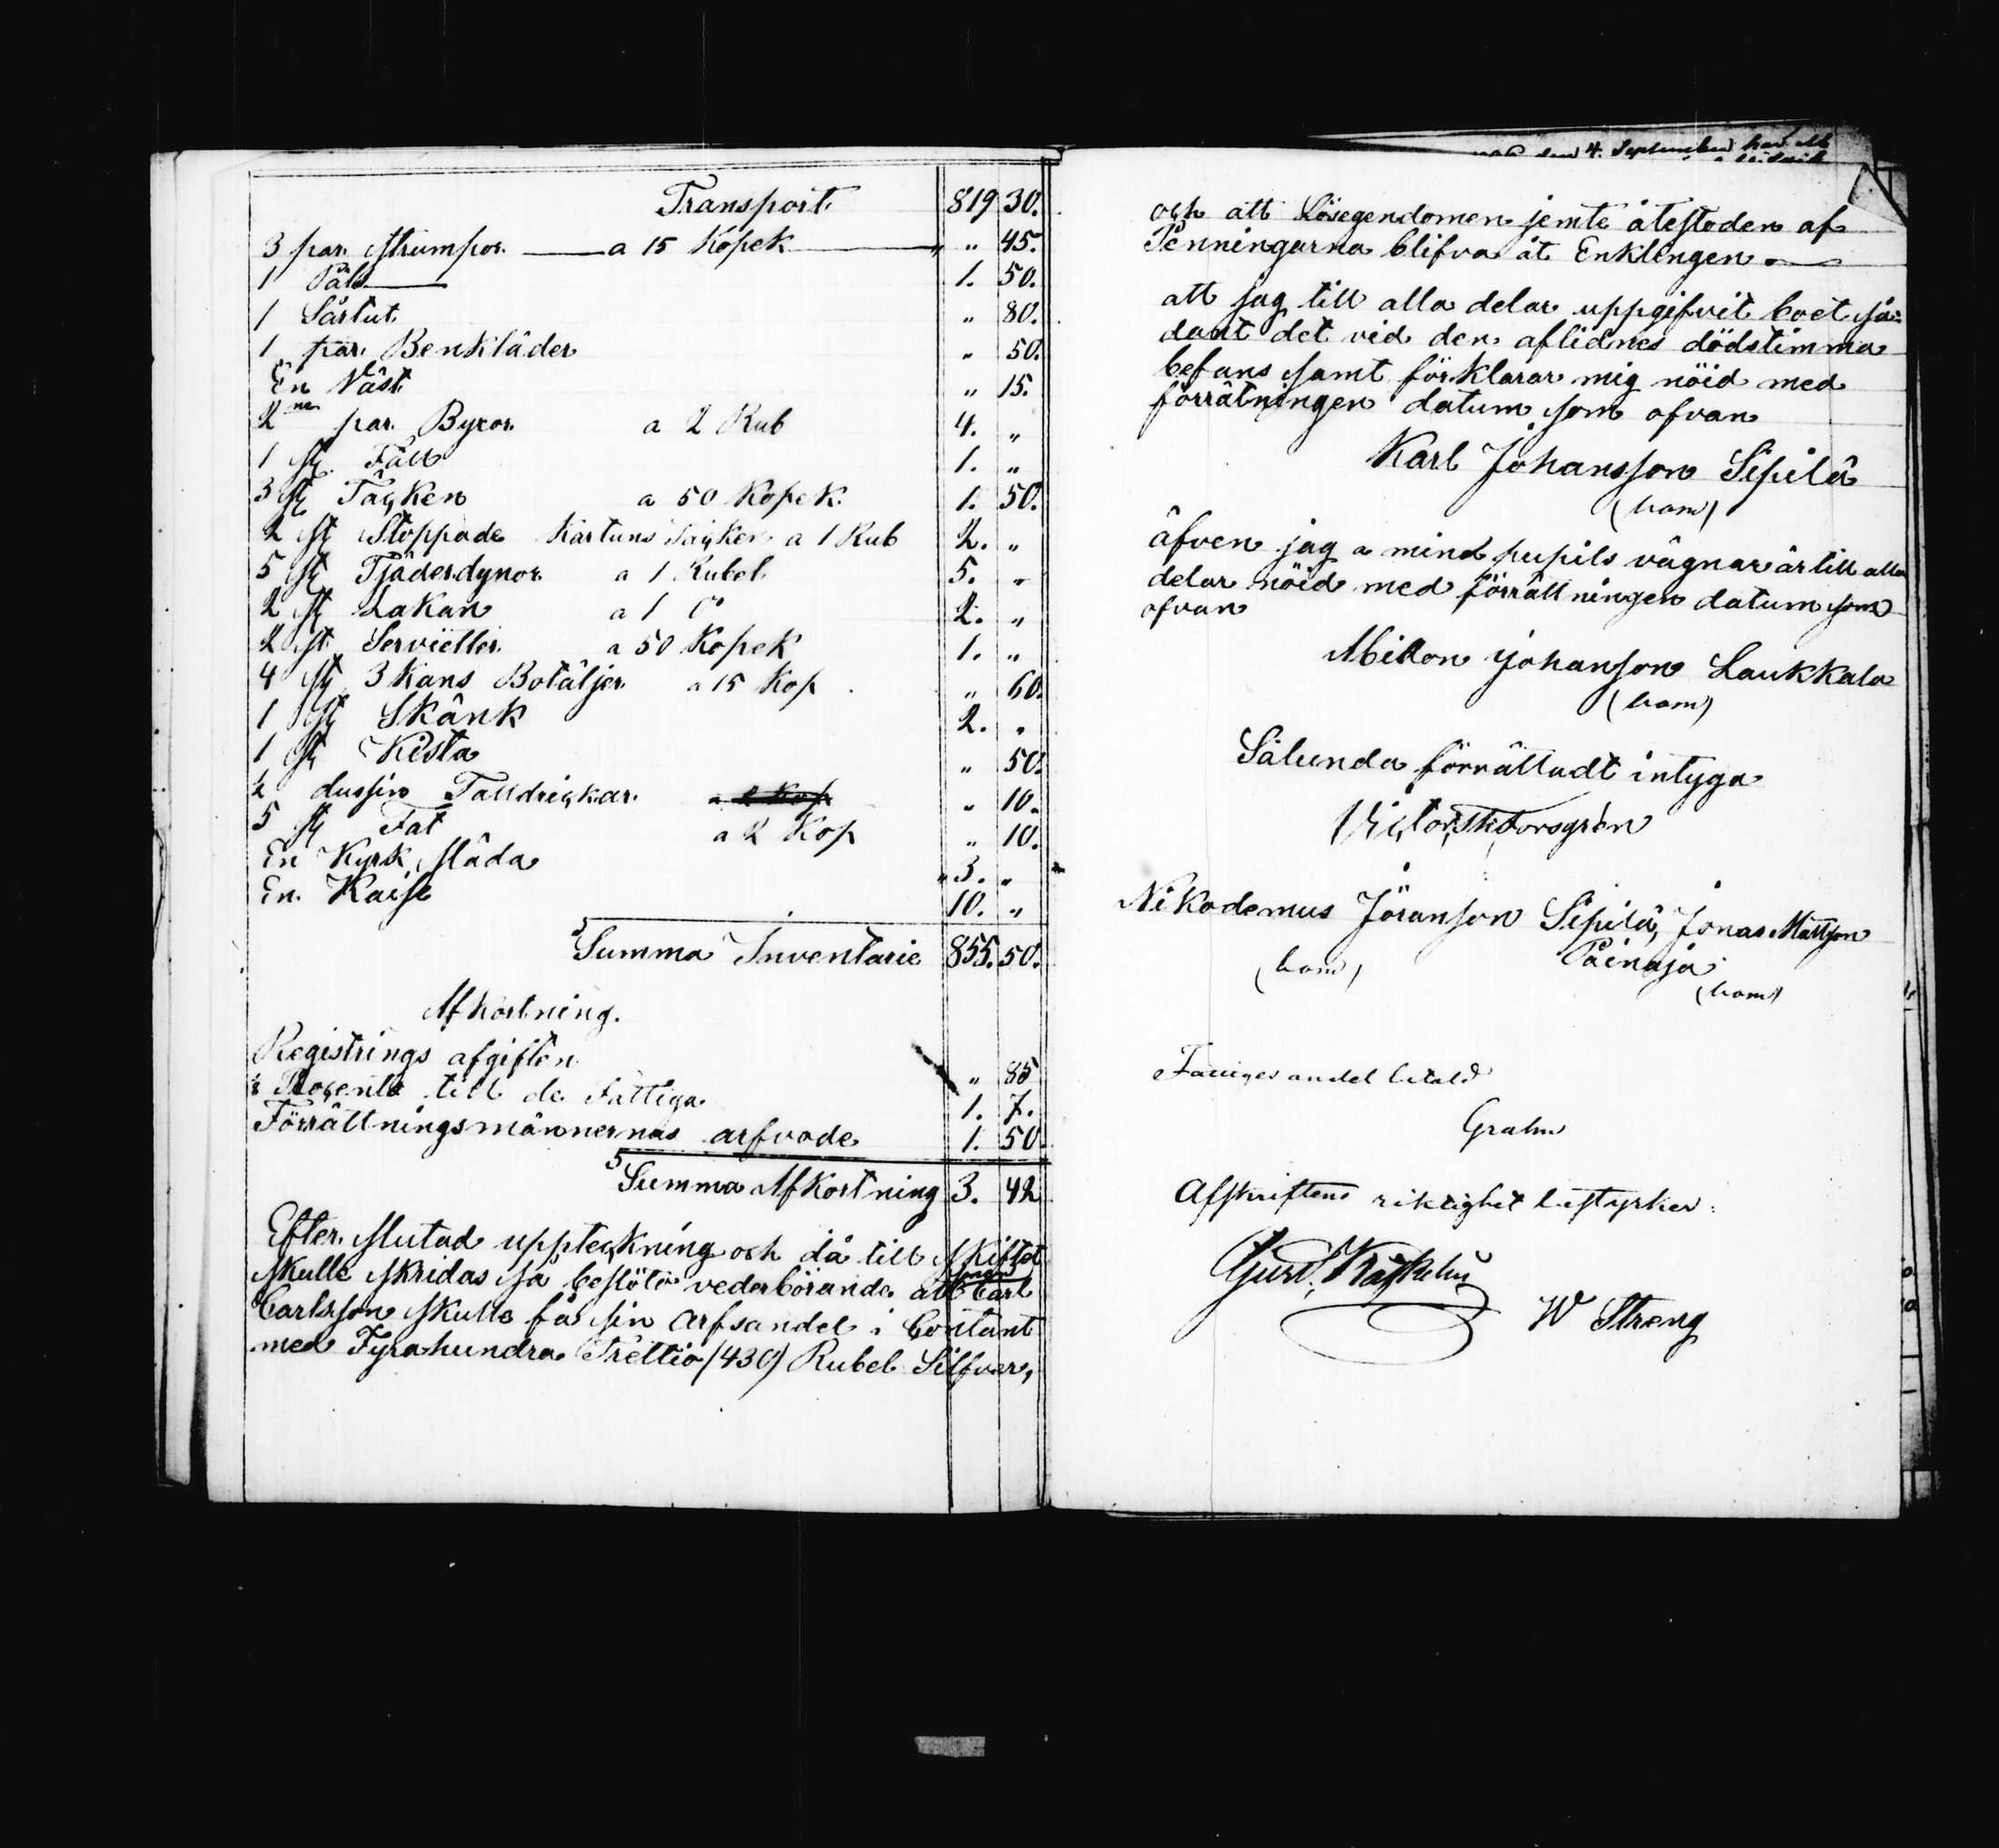 Transport. 819 30.
3 par. strumpor. a 15 Kopek " 45.
1 Päls 1. 50.
1 Särtut. " 80.
1 par. Benkläder " 50.
En Väst " 15.
2ne par. Byxor. a 2 Rub 4. "
1 st. Fäll 1. "
3 st Täcken a 50 Kopek. 1. 50.
2 st Stoppade Kartuns Täcken a 1 Rub 2. "
5 st Fjäderdynor a 1 Rubel. 5. "
2 st Lakan a 1 do 2. "
2 st. Servietter. a 50 Kopek 1. "
4 st 3 Kans Botäljer. a 15 Kop " 60.
1 st Skänk 2. "
1 st Kista " 50.
½ dussin Talldrickar. a 2 Kop " 10.
5 st Fat a 2 Kop " 10.
En Kyrk släda " 3. "
En. Kaise 10. "
Summa Inventarie 855. 50.
Afkortning.
Registrings afgiften " 85
⅛ Procent till de Fattiga 1. 7.
Förrättningsmännernas arfvode. 1. 50
Summa Afkortning 3. 42
Efter slutad uppteckning och då till skiftet
skulle skridas så beslöto vederbörande att sonen Carl
Carlsson skulle få sin arfsandel i Contant
med Fyrahundra Trettio (430) Rubel Silfver,
den 4. September har
och att Lösegendomen jemte återstoden af
Penningarna blifva åt Enklingen
att jag till alla delar uppgifvit boet så-
dant det vid den aflidnes dödstimma
befans samt förklarar mig nöid med
förrätningen datum som ofvan
Karl Johansson Sipilä
(bom)
äfven jag a mind pupils vägnar är till alla
delar nöid med förrättningen datum som
ofvan
Mickon Johanson Laukkala
(bom)
Sålunda förrättadt intyga
Victor Forsgrén
Nikodemus Jöranson Sipilä, Jonas Mattson
(bom) Päinäjä
(bom)
Fattiges andel betald
Grahn
Afskriftens riktighet bestyrker:
W Streng